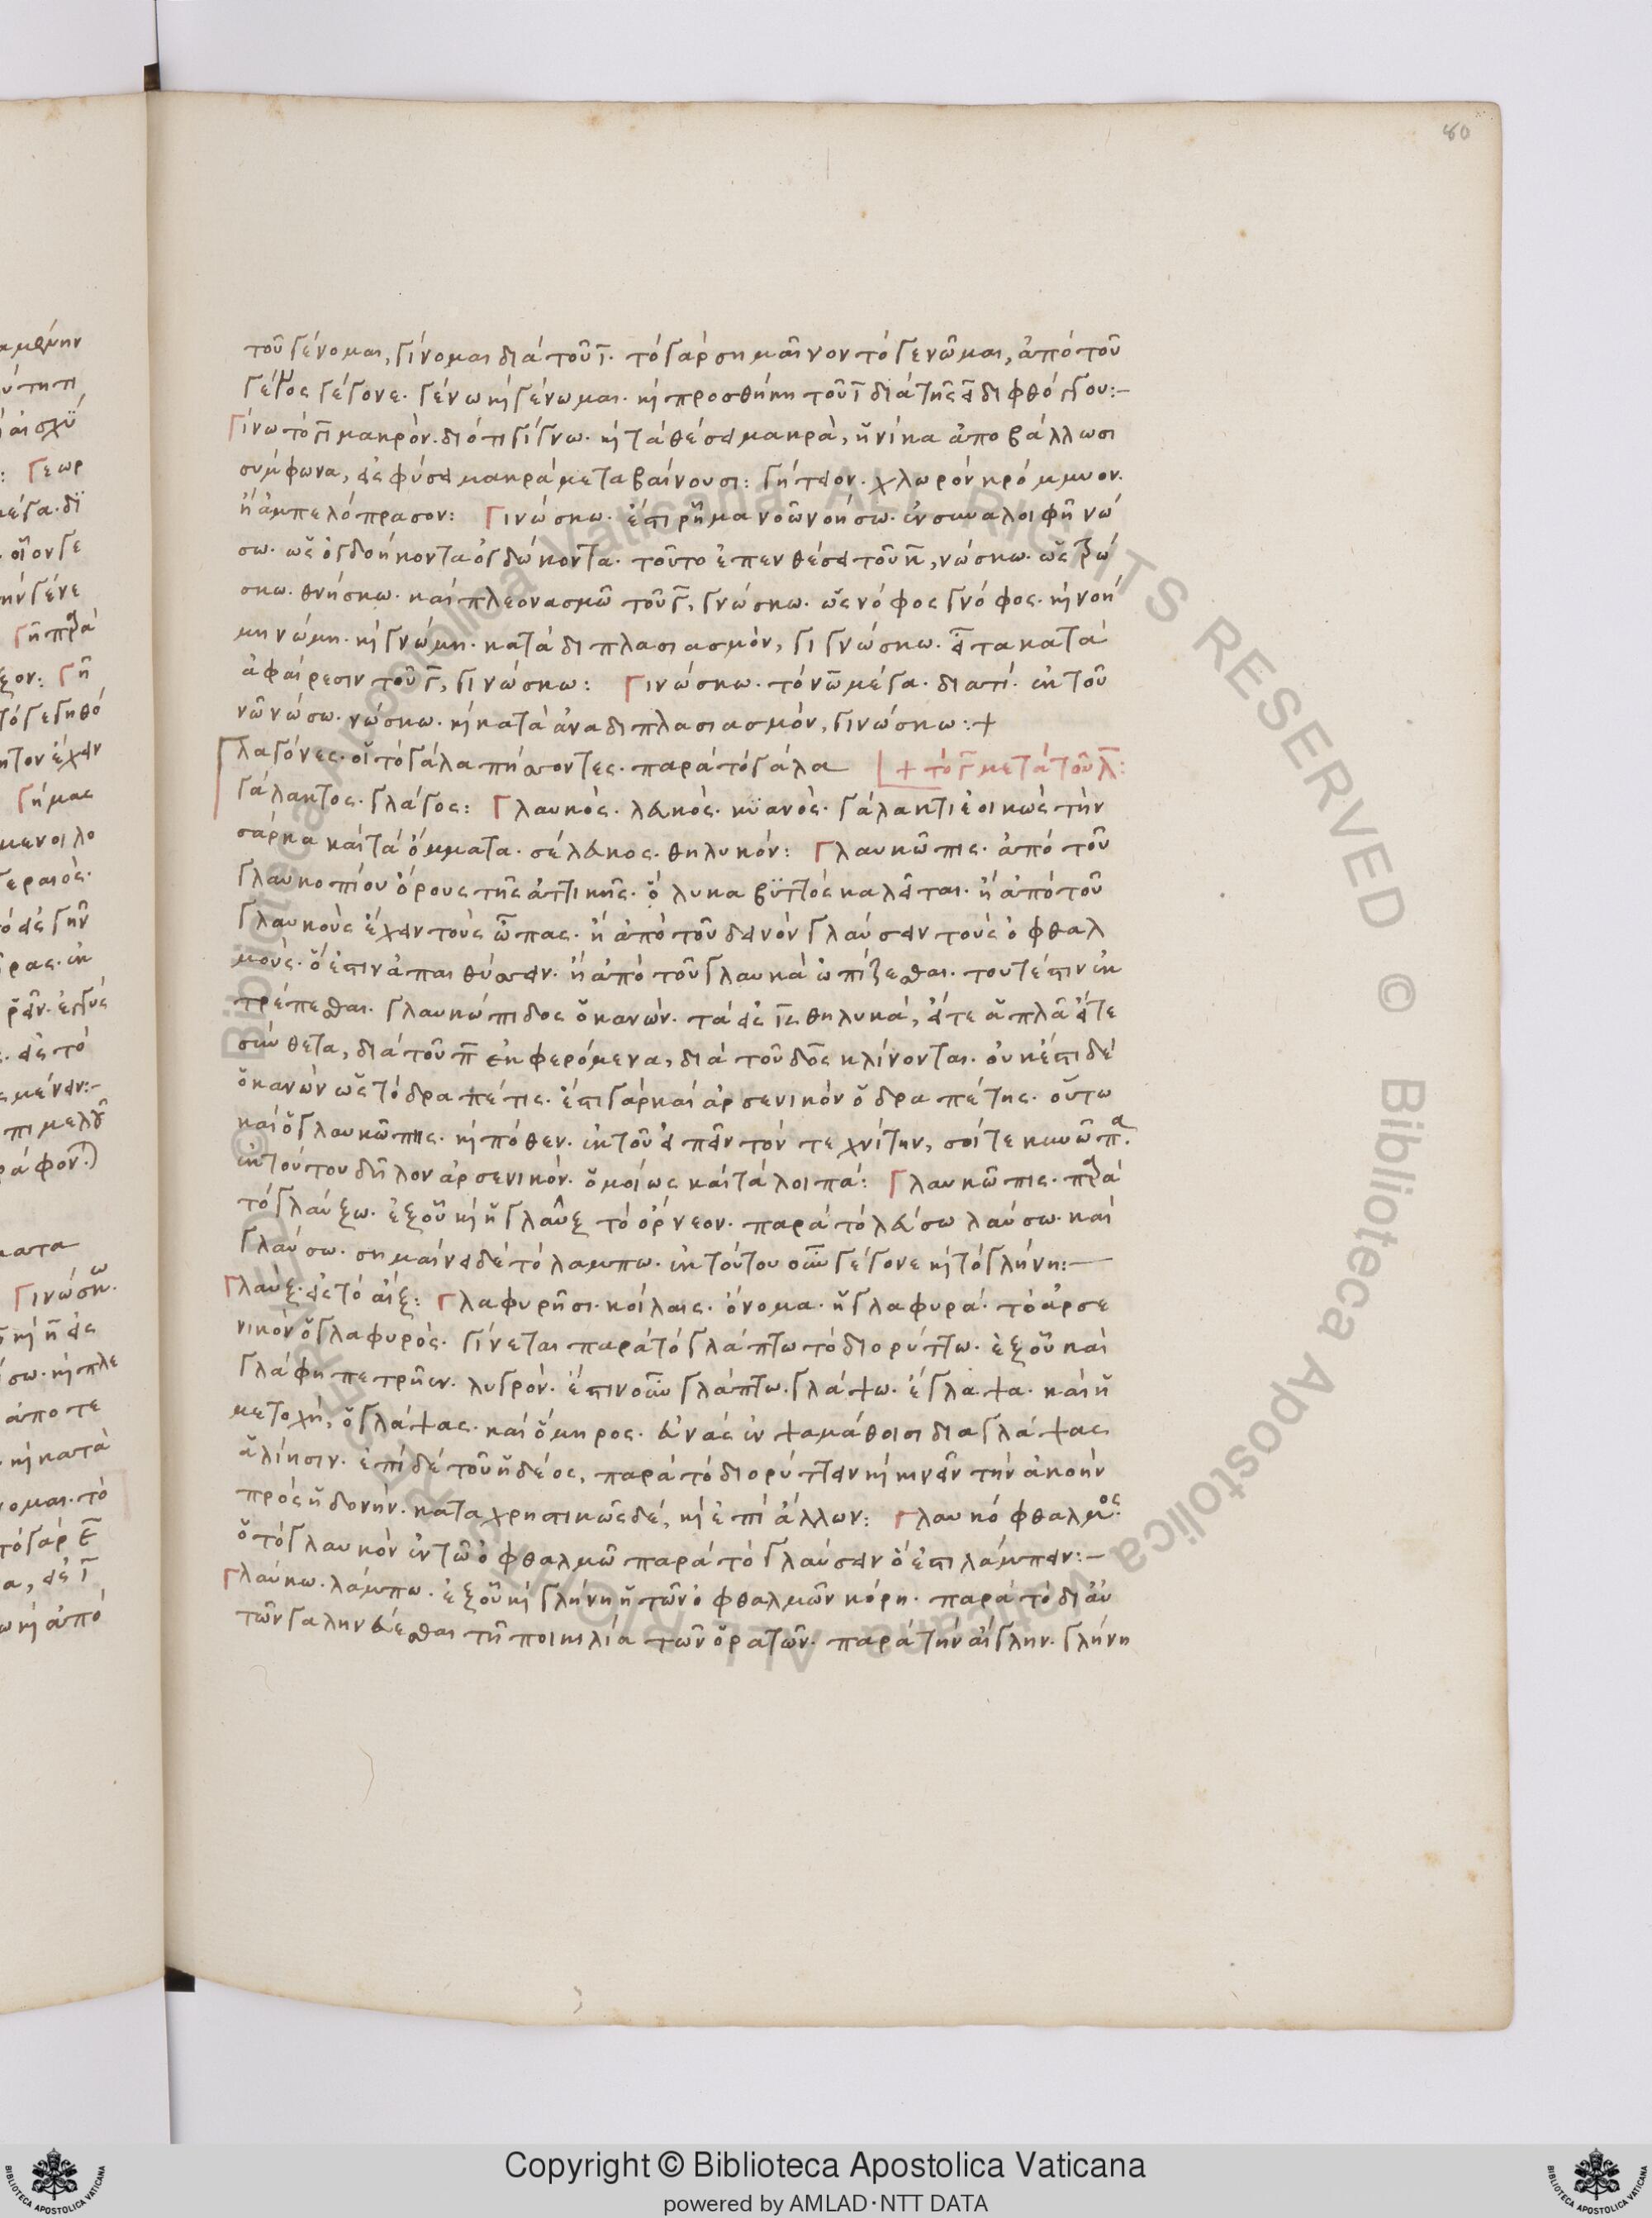 80
τοῦ γένομαι, γίνομαι διὰ τοῦ ῑ. τὸ γὰρ σημαῖνον τὸ γενῶμαι, ἀπὸ τοῦ
γένος γέγονε. γένω κ(αὶ) γένωμαι. κ(αὶ) προσθήκη τοῦ ῑ διὰ τῆς ει διφθόγγου:–
Γίνω τὸ γῑ μακρὸν. διότι γίγνω. κ(αὶ) τὰ θέσει μακρὰ, ἡνίκα ἀποβάλλωσι
σύμφωνα, εἰς φύσει μακρὰ μεταβαίνουσι: γήτειον. χλωρὸν κρόμμυον.
ἢ ἀμπελόπρασον: Γινώσκω. ἔστι ῥῆμα νοῶ νοήσω. ἐν συναλοιφῆ νώ
σω. ὡς ὀγδοήκοντα ὀγδώκοντα. τοῦτο ἐπενθέσει τοῦ κ̄, νώσκω. ὡς τρώ
σκω. θνήσκω. καὶ πλεονασμῶ τοῦ γ̄, γνώσκω. ὡς νόφος γνόφος. κ(αὶ) νοή
μη νώμη. κ(αὶ) γνώμη. κατὰ διπλασιασμὸν, γιγνώσκω. εἶτα κατὰ
ἀφαίρεσιν τοῦ γ̄, γινώσκω: Γινώσκω. τὸ νω μέγα. διατί. ἐκ τοῦ
νῶ νώσω. νώσκω. κ(αὶ) κατὰ ἀναδιπλασιασμὸν, γινώσκω:+
Γλαγόνες. οἱ τὸ γάλα πήσσοντες. παρὰ τὸ γάλα + τὸ γ̄ μετὰ τοῦ λ̄:
γάλακτος. γλάγος: Γλαυκὸς. λευκὸς. κυανὸς. γάλακτι ἐοικὼς τὴν
σάρκα καὶ τὰ ὄμματα. σέλευκος. θηλυκόν: Γλαυκῶπις. ἀπὸ τοῦ
γλαυκοπίου ὄρους τῆς ἀττικῆς. ὃ λυκαβϋττὸς καλεῖται. ἢ ἀπὸ τοῦ
γλαυκοὺς ἔχειν τοὺς ὦπας. ἢ ἀπὸ τοῦ δεινὸν γλαύσειν τοὺς ὀφθαλ
μούς. ὅ ἐστιν ἀπαιθύσσειν. ἢ ἀπὸ τοῦ γλαυκὰ ὠπίζεσθαι. τουτέστιν ἐκ
τρέπεσθαι. γλαυκώπιδος ὁ κανών. τὰ εἰς ῑς θηλυκά, εἴτε ἁπλᾶ εἴτε
σύνθετα, διὰ τοῦ π̄ ἐκφερόμενα, διὰ τοῦ δος κλίνονται. οὐκ ἔστι δέ
ὁ κανὼν ὡς τὸ δραπέτις. ἔστι γὰρ καὶ ἀρσενικὸν ὁ δραπέτης. οὕτω
καὶ ὁ γλαυκώπης. κ(αὶ) πόθεν. ἐκ τοῦ εἰπεῖν τὸν τεχνίτην, σοί τε κυνῶπα.
ἐκ τούτου δῆλον ἀρσενικόν. ὁμοίως καὶ τὰ λοιπά: Γλαυκῶπις. παρὰ
τὸ γλαύξω. ἐξ οὗ κ(αὶ) ἡ γλαῦξ τὸ ὄρνεον. παρὰ τὸ λεύσω λαύσω. καὶ
γλαύσω. σημαίνει δὲ τὸ λάμπω. ἐκ τούτου οὖν γέγονε κ(αὶ) τὸ γλήνη:—
Γλαύξ. εἰς τὸ αἴξ: Γλαφυρῆσι. κοίλαις. ὄνομα. ἡ γλαφυρά. τὸ ἀρσε
νικὸν ὁ γλαφυρός. γίνεται παρὰ τὸ γλάπτω τὸ διορύττω. ἐξ οὗ καὶ
γλάφη πετρῆεν. λυγρόν. ἔστιν οὖν γλάπτω. γλάψω. ἔγλαψα. καὶ ἡ
μετοχή, ὁ γλάψας. καὶ ὅμηρος. εὐνὰς ἐν ψαμάθοισι διαγλάψας
ἁλίησιν. ἐπὶ δὲ τοῦ ἡδέος, παρὰ τὸ διορύττειν κ(αὶ) κινεῖν τὴν ἀκοὴν
πρὸς ἡδονήν. καταχρηστικῶς δέ, κ(αὶ) ἐπὶ ἄλλων: Γλαυκόφθαλμος.
ὁ τὸ γλαυκὸν ἐν τῶ ὀφθαλμῶ παρὰ τὸ γλαύσειν ὅ ἐστι λάμπειν:–
Γλαύκω. λάμπω. ἐξ οὗ κ(αὶ) γλήνη ἡ τῶν ὀφθαλμῶν κόρη. παρὰ τὸ δι' αὐ
τῶν γαληνεύεσθαι τῆ ποικιλία τῶν ὁρατῶν. παρὰ τὴν αἴγλην. γλήνη
© Biblioteca Apostolica Vaticana ALL RIGHTS RESERVED © Biblioteca Apostolica Vaticana ALL RIGHTS RESERVED
Copyright © Biblioteca Apostolica Vaticana
powered by AMLAD·NTT DATA
BIBLIOTECA APOSTOLICA VATICANA
BIBLIOTECA APOSTOLICA VATICANA